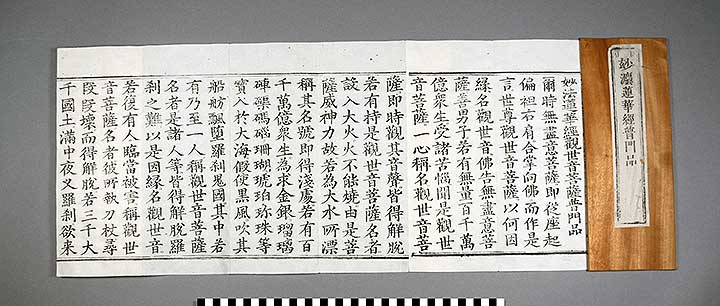 妙灋蓮華經普門品
妙法蓮華經觀世音菩薩普門品
爾時無盡意菩薩即從座起
偏袒右肩合掌向佛而作是
言世尊觀世音菩薩以何因
緣名觀世音佛告無盡意菩
薩善男子若有無量百千萬
億衆生受諸苦惱聞是觀世
音菩薩一心稱名觀世音菩
薩即時觀其音聲皆得解脫
若有持是觀世音菩薩名者
設入大火火不能燒由是菩
薩威神力故若為大水所漂
稱其名號即得淺處若有百
千萬億衆生為求金銀瑠璃
硨磲碼碯珊瑚琥珀珍珠等
寶入於大海假使黑風吹其
船舫飄墮羅剎鬼國其中若
有乃至一人稱觀世音菩薩
名者是諸人等皆得解脫羅
剎之難以是因緣名觀世音
若復有人臨當被害稱觀世
音菩薩名者彼所執刀杖尋
段段壞而得解脫若三千大
千國土滿中夜叉羅剎欲來